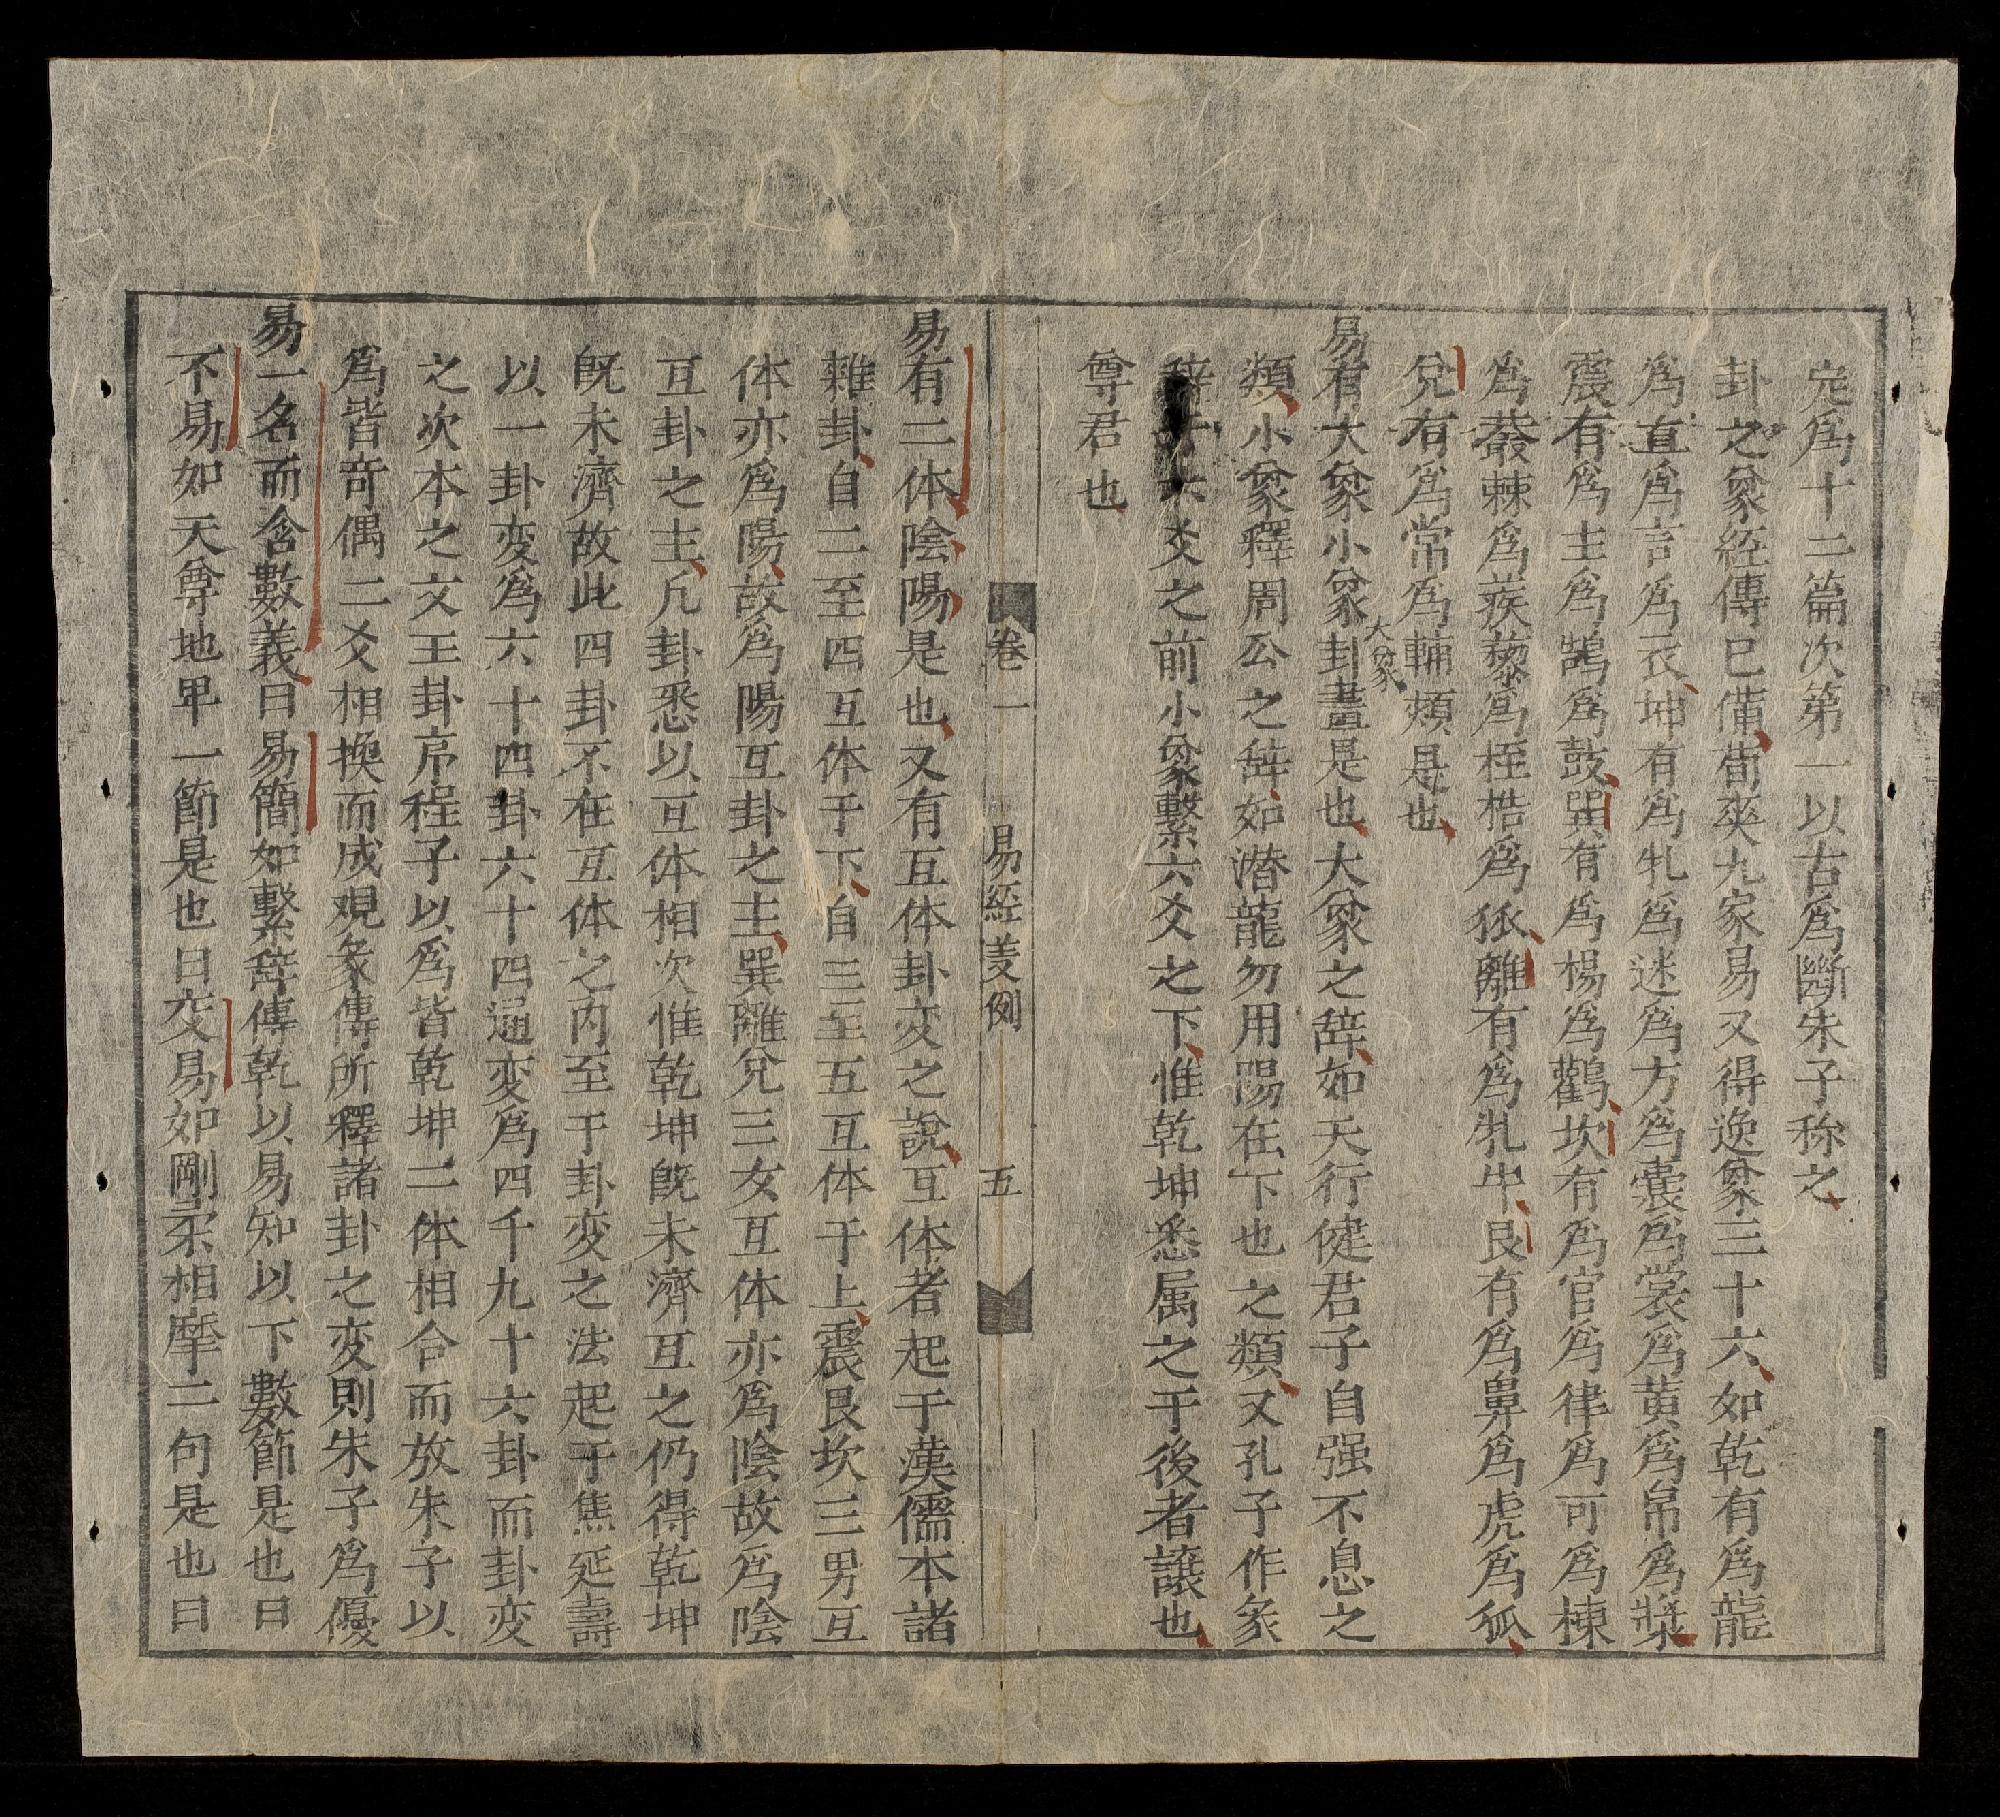 定爲十二篇次第一以古爲斷朱子称之
卦之象経傳已備荀爽九家易又得逸象三十六如乾有爲龍
爲直爲言爲衣坤有爲牝爲迷爲方爲囊爲裳爲黄爲帛爲漿
震有爲主爲鵠爲鼓巽有爲楊爲鸛坎有爲宮爲律爲可爲棟
爲叢棘爲蒺藜爲桎梏爲狐離有爲牝牛艮有爲鼻爲虎爲狐
兌有爲常爲輔頰是也
易有大象小象大象卦畫是也大象之辞如天行健君子自强不息之
類小象釋周公之辞如潜龍勿用陽在下也之類又孔子作彖
辞于六爻之前小象繫六爻之下惟乾坤悉属之于後者讓也
尊君也
卷一 易経羙例 五
易有二体陰陽是也又有互体卦变之說互体者起于漢儒本諸
雜卦自二至四互体于下自三至五互体于上震艮坎三男互
体亦爲陽故爲陽互卦之主巽離兌三女互体亦爲陰故爲陰
互卦之主凡卦悉以互体相次惟乾坤旣未濟互之仍得乾坤
旣未濟故此四卦不在互体之内至于卦变之法起于焦延壽
以一卦变爲六十四卦六十四通变爲四千九十六卦而卦变
之次本之文王卦序程子以爲皆乾坤二体相合而放朱子以
爲皆奇偶二爻相換而成观彖傳所釋諸卦之变則朱子爲優
易一名而含數義曰易簡如繫辞傳乾以易知以下數節是也曰
不易如天尊地卑一節是也曰交易如剛柔相摩二句是也曰